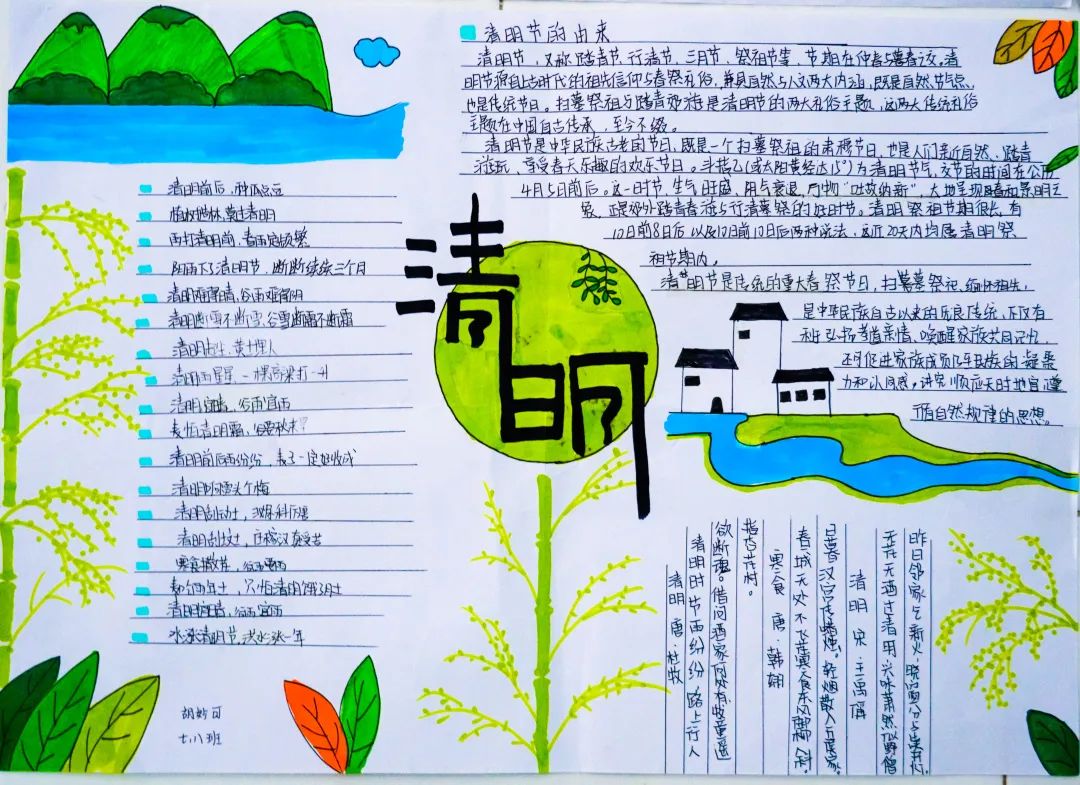 清明节的由来
清明节，又称踏青节、行清节、三月节、祭祖节等，节期在仲春与暮春之交。清
明节源自上古时代的祖先信仰与春祭礼俗，兼具自然与人文两大内涵，既是自然节气点，
也是传统节日。扫墓祭祖与踏青郊游是清明节的两大礼俗主题，这两大传统礼俗
主题在中国自古传承，至今不辍。
清明节是中华民族古老的节日，既是一个扫墓祭祖的肃穆节日，也是人们亲近自然、踏青
游玩、享受春天乐趣的欢乐节日。斗指乙(或太阳黄经达15°)为清明节气，交节的时间在公历
4月5日前后。这一时节，生气旺盛、阴气衰退，万物“吐故纳新”，大地呈现春和景明之
象，正是郊外踏青春游与行清墓祭的好时节。清明祭祖节期很长，有
10日前8日后以及10日前10日后两种说法，这近20天内均属清明祭
祖节期内。
清明节是传统的重大春祭节日，扫墓祭祀、缅怀祖先，
是中华民族自古以来的优良传统，不仅有
利于弘扬孝道亲情、唤醒家族共同记忆，
还可促进家族成员乃至民族的凝聚
力和认同感。
循自然规律的思想。
清明
清明前后，种瓜点豆
植树造林，莫过清明
雨打清明前，春雨定频繁
阴雨下了清明节，断断续续三个月
清明难得晴，谷雨难得阴
清明断雪不断雪，谷雪断霜不断霜
清明雨星星，一棵高粱打一升
清明宜晴，谷雨宜雨
麦怕清明霜，谷要秋来
清明前后雨纷纷，麦子一定好收成
清明
清明刮
清明刮
清明宜晴，谷雨宜雨
水涨清明节，洪水涨一年
胡妙可
七.八班
昨日邻家乞新火，晓窗分与读书灯。
无花无酒过清明，兴味萧然似野僧
清明 宋·王禹偁
日暮汉宫传蜡烛，轻烟散入五侯家。
春城无处不飞花，寒食东风御柳斜。
寒食 唐·韩翃
指杏花村。
欲断魂。借问酒家何处有，牧童遥
清明时节雨纷纷，路上行人
清明 唐·杜牧